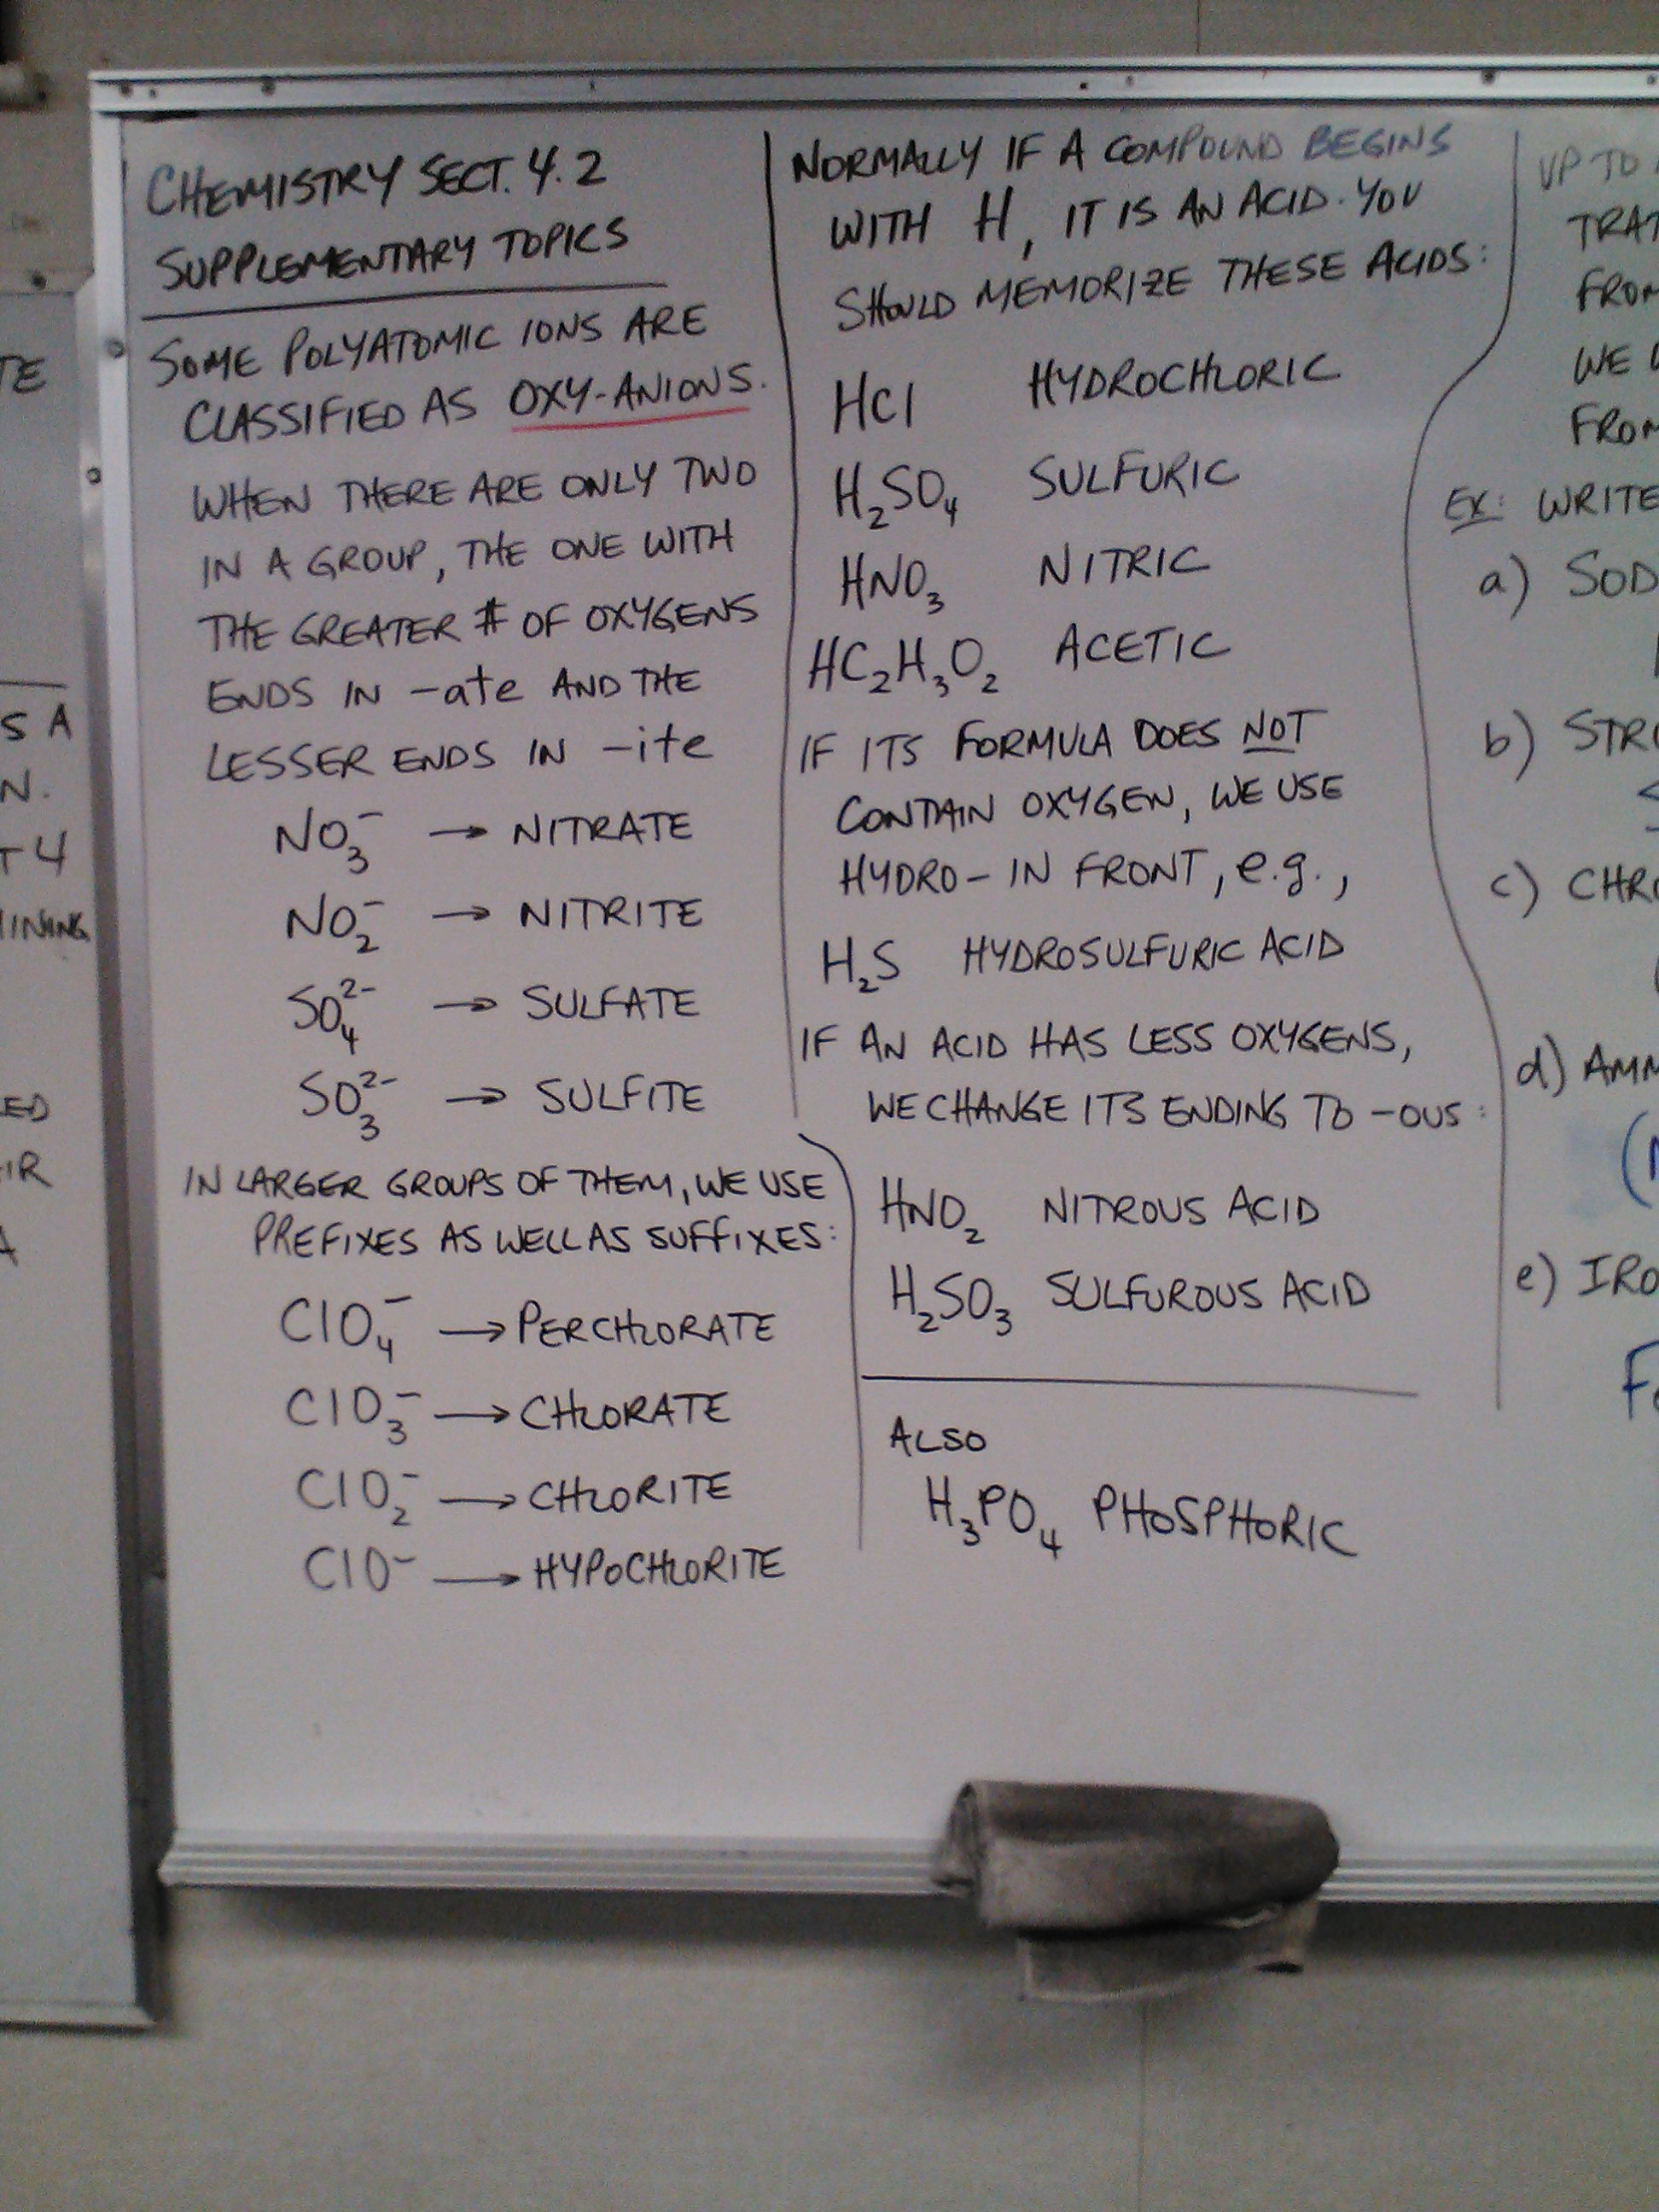 TE
S A
N.
T 4
INING
ED
IR
A
CHEMISTRY SECT. 4.2
SUPPLEMENTARY TOPICS
SOME POLYATOMIC IONS ARE
CLASSIFIED AS OXY-ANIONS.
WHEN THERE ARE ONLY TWO
IN A GROUP, THE ONE WITH
THE GREATER # OF OXYGENS
ENDS IN -ate AND THE
LESSER ENDS IN -ite
NO₃⁻ → NITRATE
NO₂⁻ → NITRITE
SO₄²⁻ → SULFATE
SO₃²⁻ → SULFITE
IN LARGER GROUPS OF THEM, WE USE
PREFIXES AS WELL AS SUFFIXES:
ClO₄⁻ → PERCHLORATE
ClO₃⁻ → CHLORATE
ClO₂⁻ → CHLORITE
ClO⁻ → HYPOCHLORITE
NORMALLY IF A COMPOUND BEGINS
WITH H, IT IS AN ACID. YOU
SHOULD MEMORIZE THESE ACIDS:
HCl HYDROCHLORIC
H₂SO₄ SULFURIC
HNO₃ NITRIC
HC₂H₃O₂ ACETIC
IF ITS FORMULA DOES NOT
CONTAIN OXYGEN, WE USE
HYDRO- IN FRONT, e.g.,
H₂S HYDROSULFURIC ACID
IF AN ACID HAS LESS OXYGENS,
WE CHANGE ITS ENDING TO -OUS:
HNO₂ NITROUS ACID
H₂SO₃ SULFUROUS ACID
ALSO
H₃PO₄ PHOSPHORIC
UP TO
TRAT
FROM
WE
FROM
EX: WRITE
a) SOD
b) STRO
c) CHRO
d) AMM
e) IRO